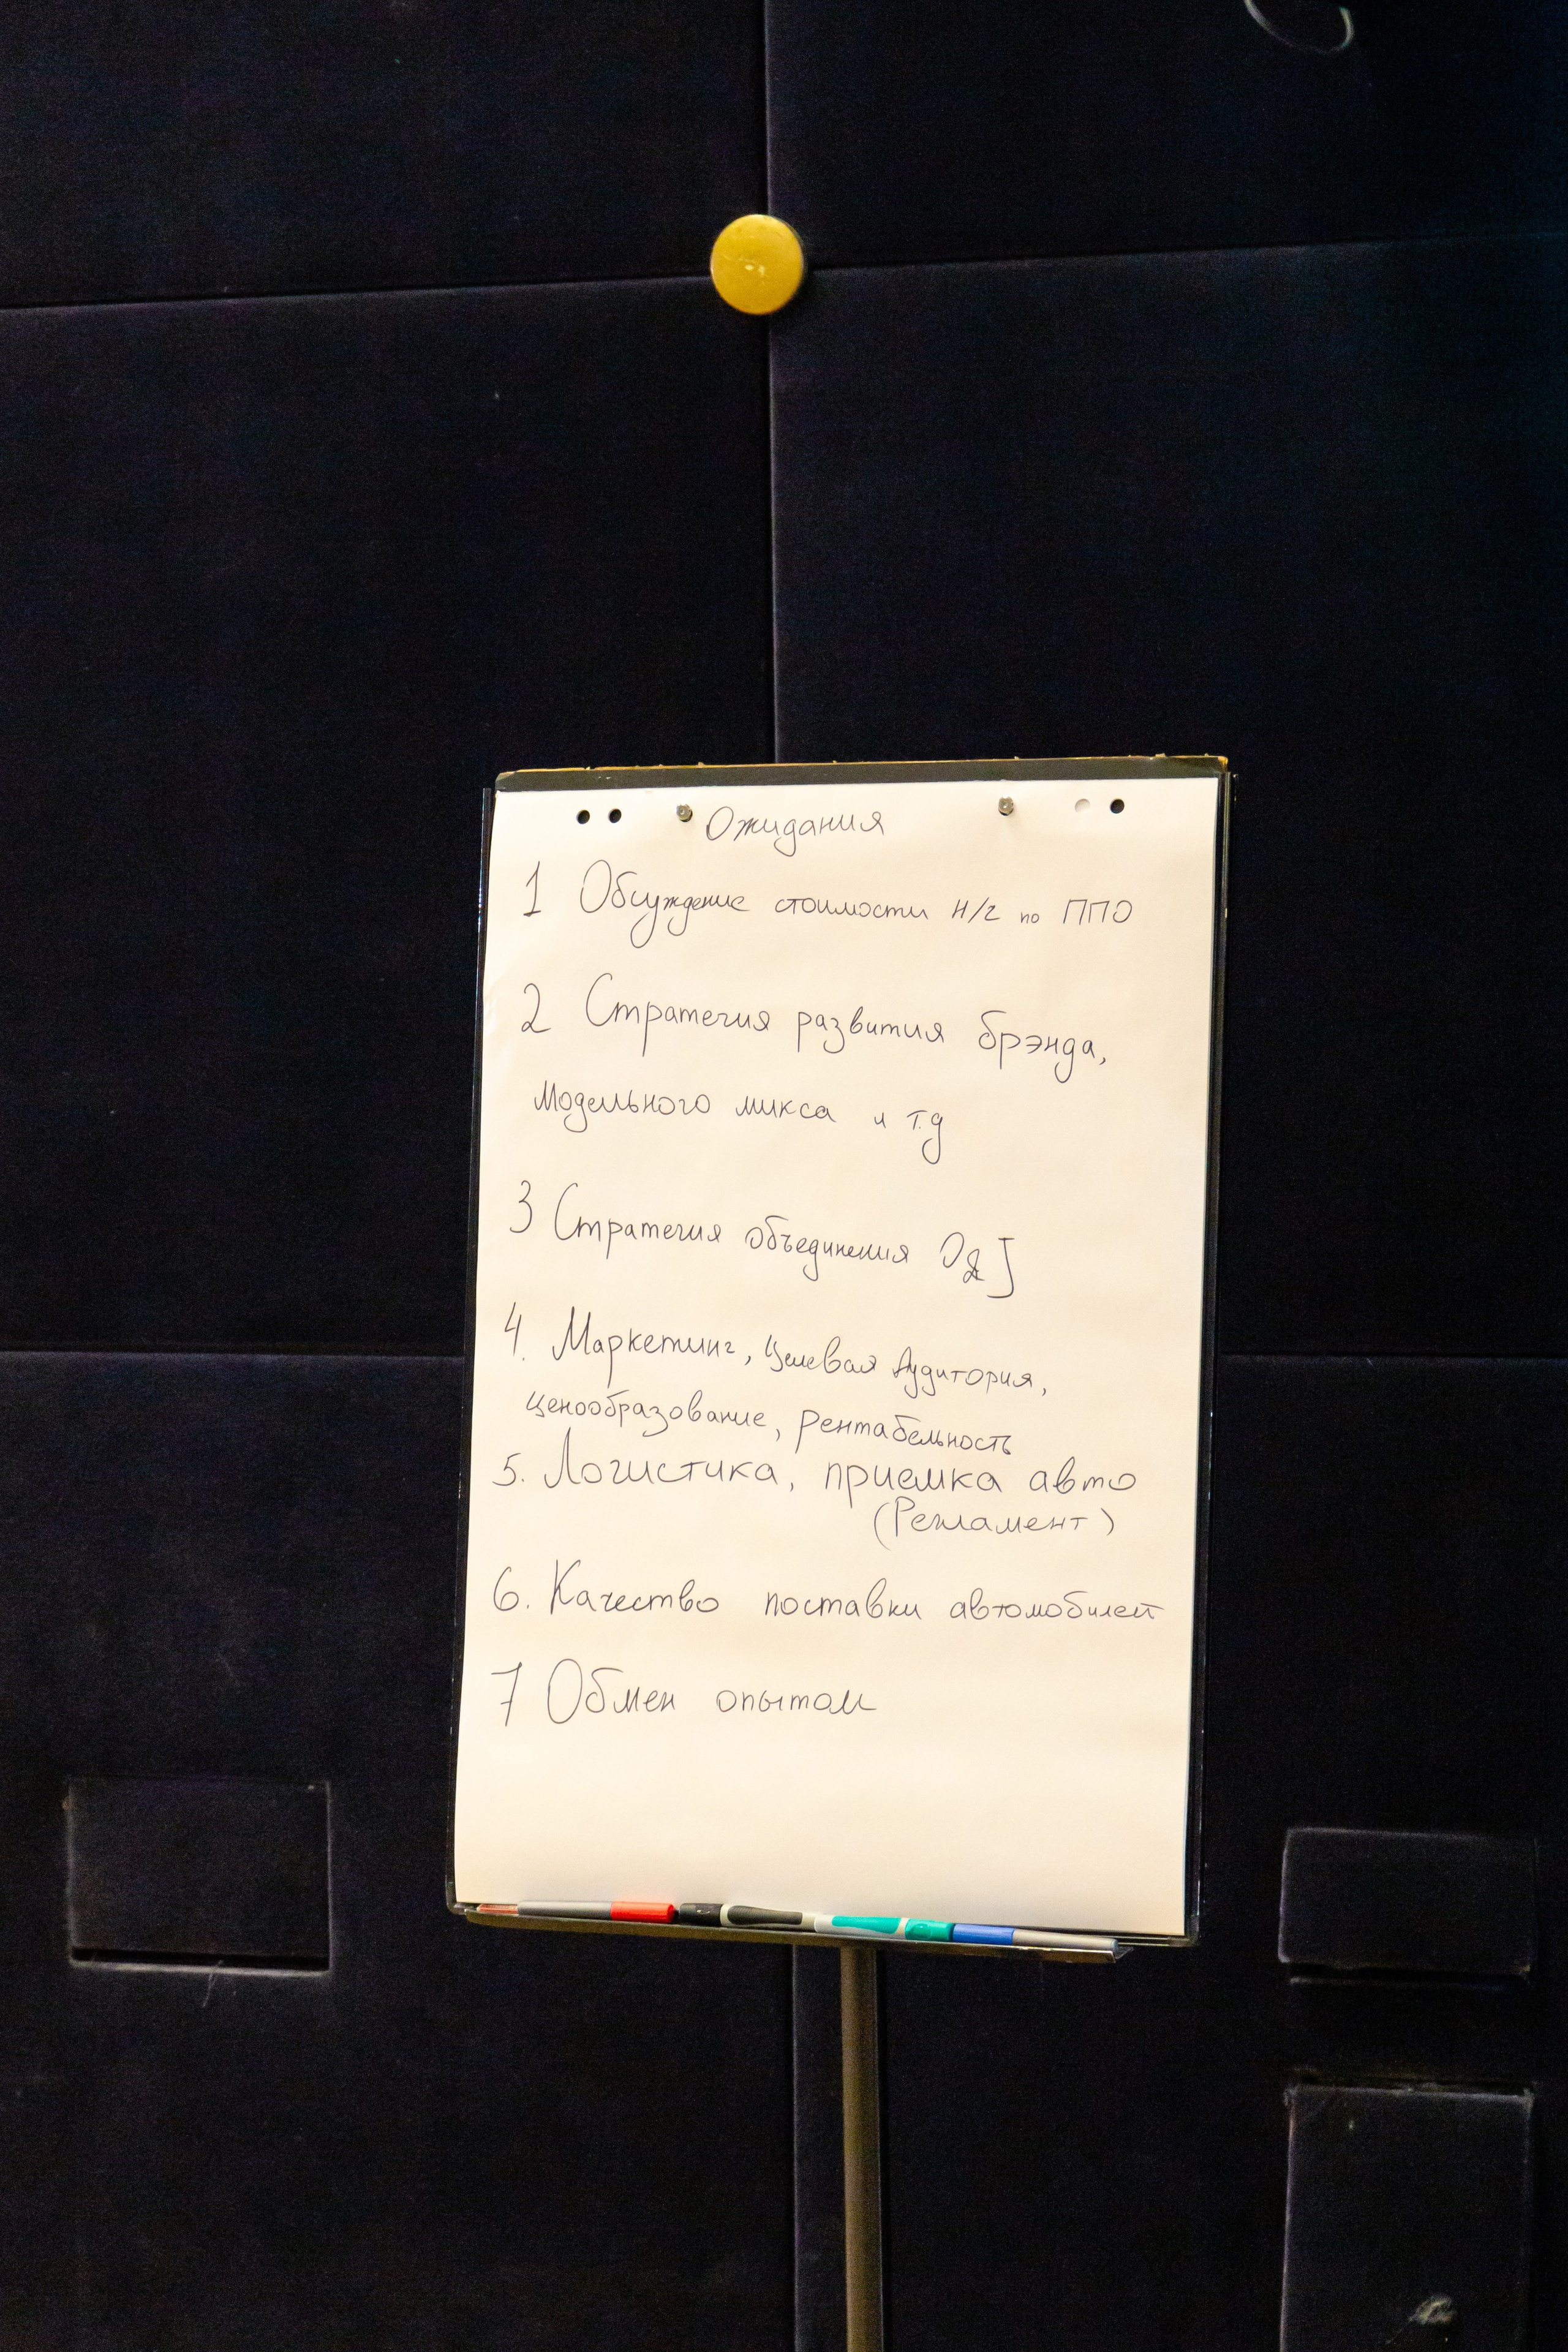 Ожидания
1 Обсуждение стоимости н/г по ППО
2 Стратегия развития брэнда,
модельного микса и т.д
3 Стратегия объединения O&J
4. Маркетинг, целевая аудитория,
ценообразование, рентабельность
5. Логистика, приемка авто
(Регламент)
6. Качество поставки автомобилей
7 Обмен опытом